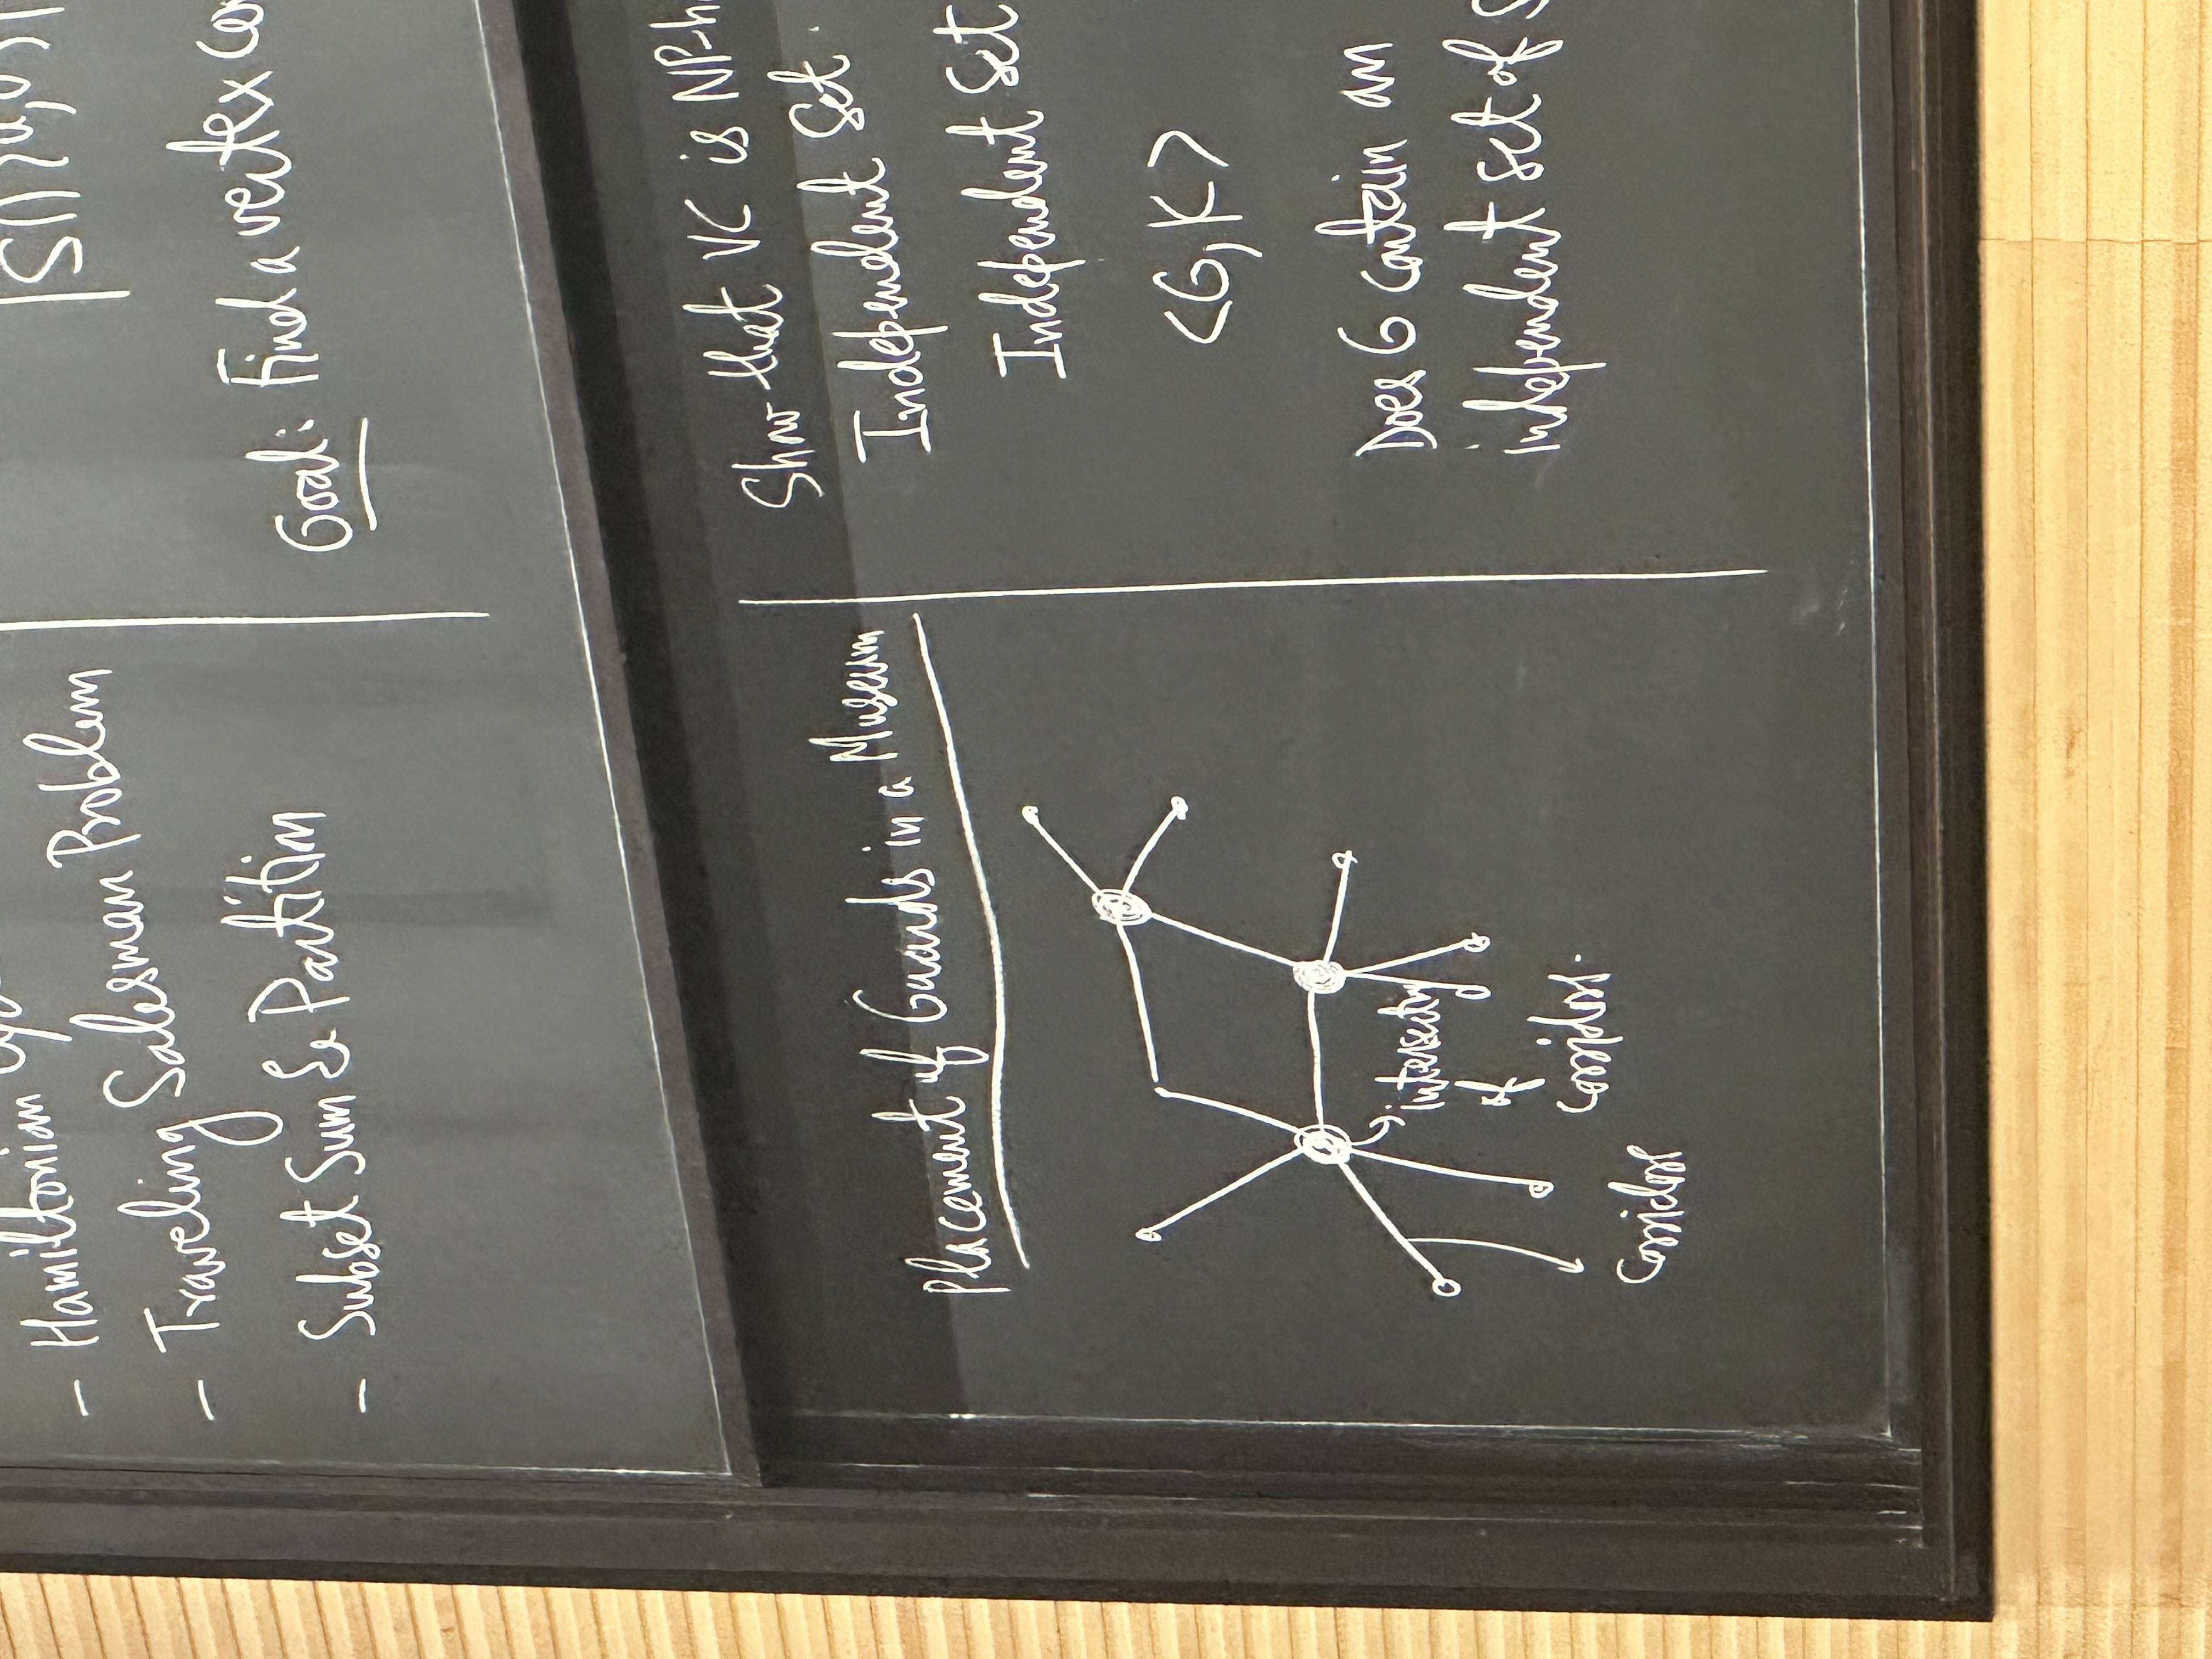 - Hamiltonian
- Traveling Salesman Problem
- Subset Sum & Partition
Goal: Find a vertex
Placement of Guards in a Museum
intersection
of
Corridors.
Corridors
Show that VC is
Independent Set.
Independent Set
<G, K>
Does G contain an
independent set of